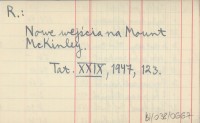 R.:
Nowe wejścia na Mount
McKinley.
Tat. XXIX, 1947, 123.